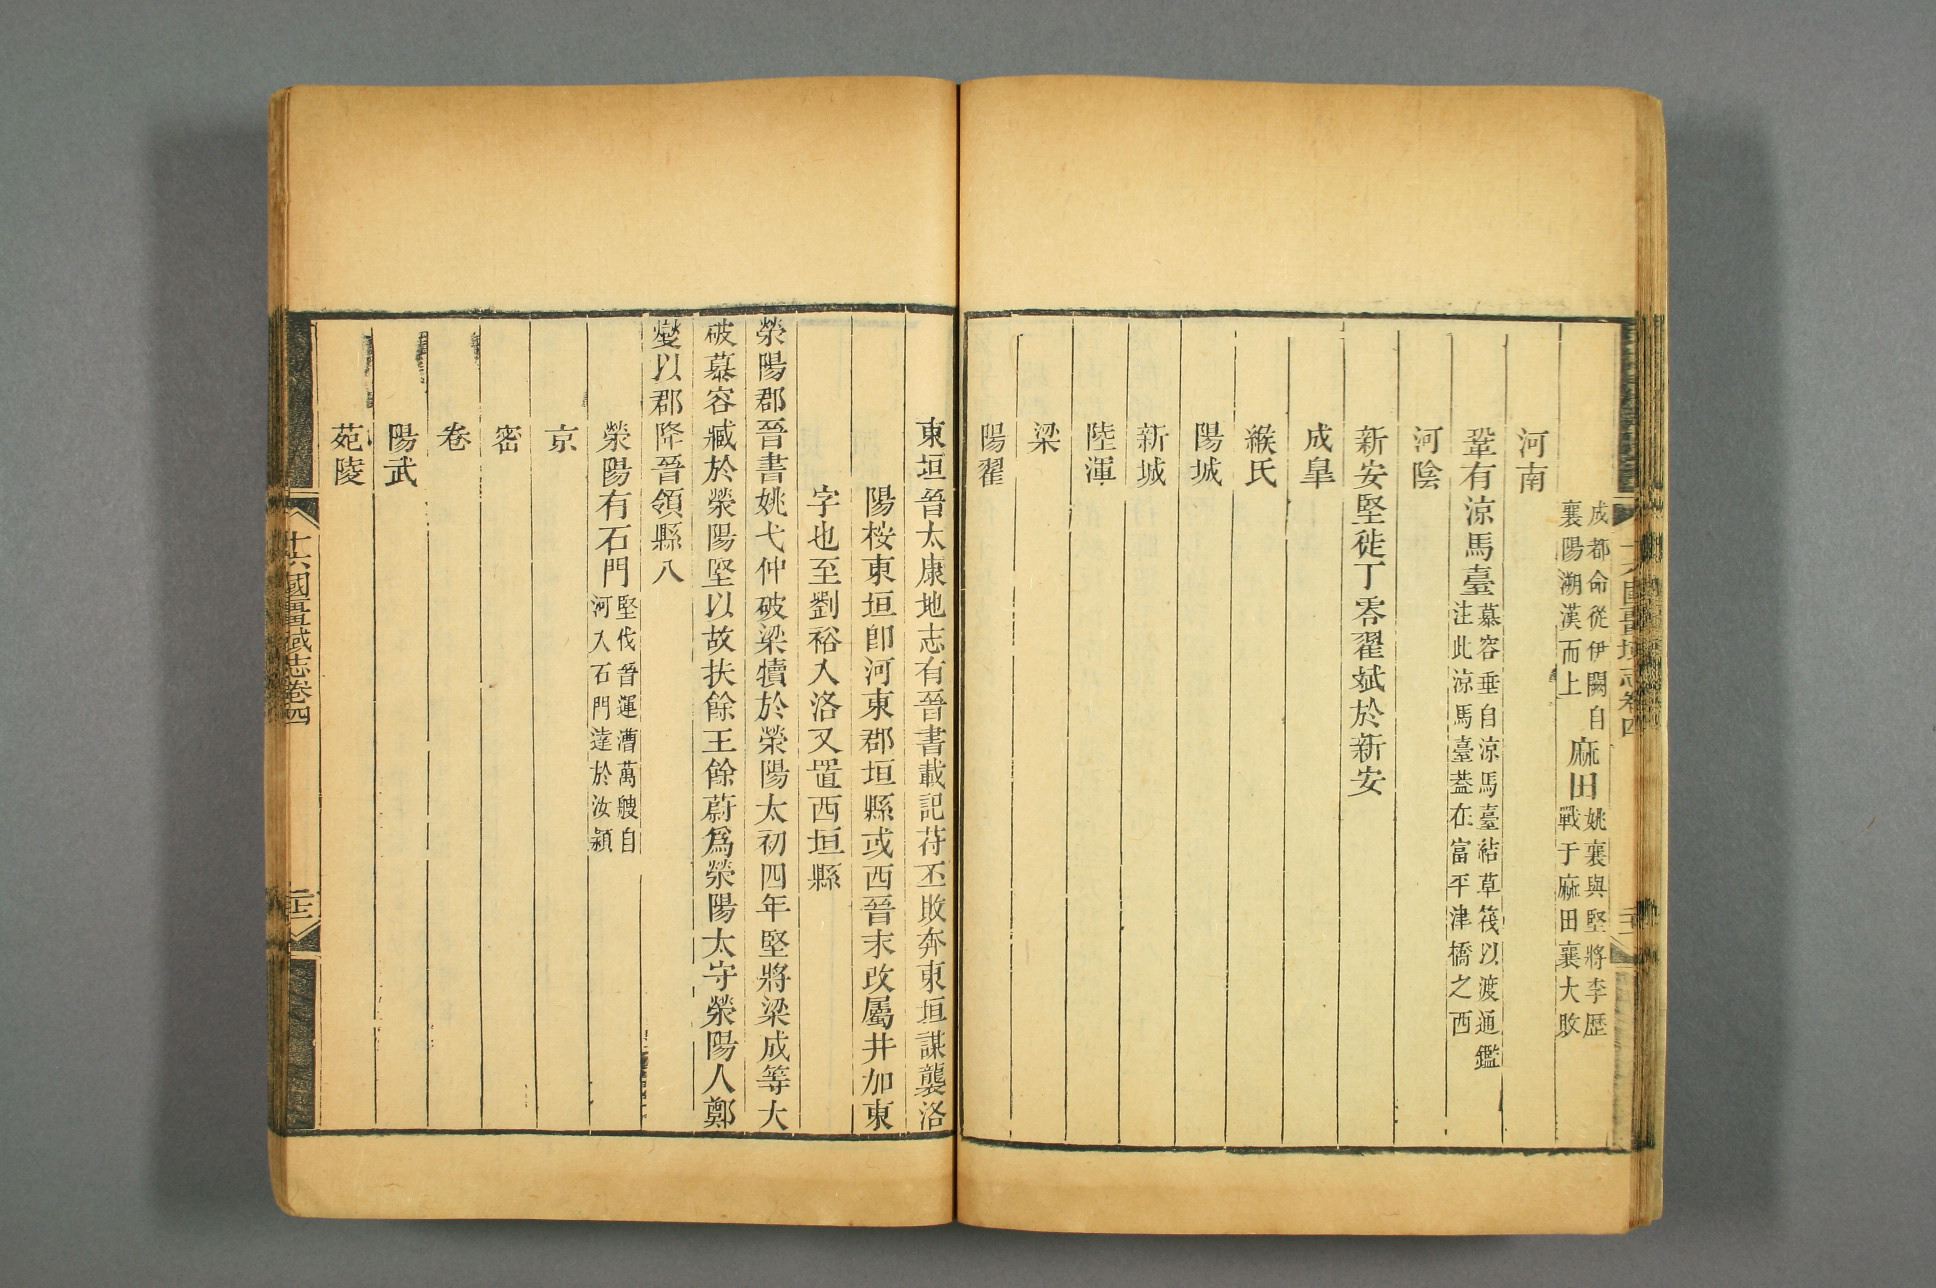 成都命從伊闕自
襄陽溯漢而上
麻田
姚襄與堅將李歴
戰于麻田襄大敗
河南
鞏有涼馬臺
慕容垂自涼馬臺結草筏以渡通鑑
注此涼馬臺葢在富平津橋之西
河陰
新安堅徙丁零翟斌於新安
成臯
緱氏
陽城
新城
陸渾
梁
陽翟
東垣晉太康地志有晉書載記苻丕敗奔東垣謀襲洛
陽桉東垣卽河東郡垣縣或西晉末改屬幷加東
字也至劉裕入洛又置西垣縣
滎陽郡晉書姚弋仲破梁犢於滎陽太初四年堅將梁成等大
破慕容臧於滎陽堅以故扶餘王餘蔚爲滎陽太守滎陽人鄭
燮以郡降晉領縣八
滎陽有石門
堅伐晉運漕萬艘自
河入石門達於汝潁
京
密
卷
陽武
苑陵
十六國疆域志卷四